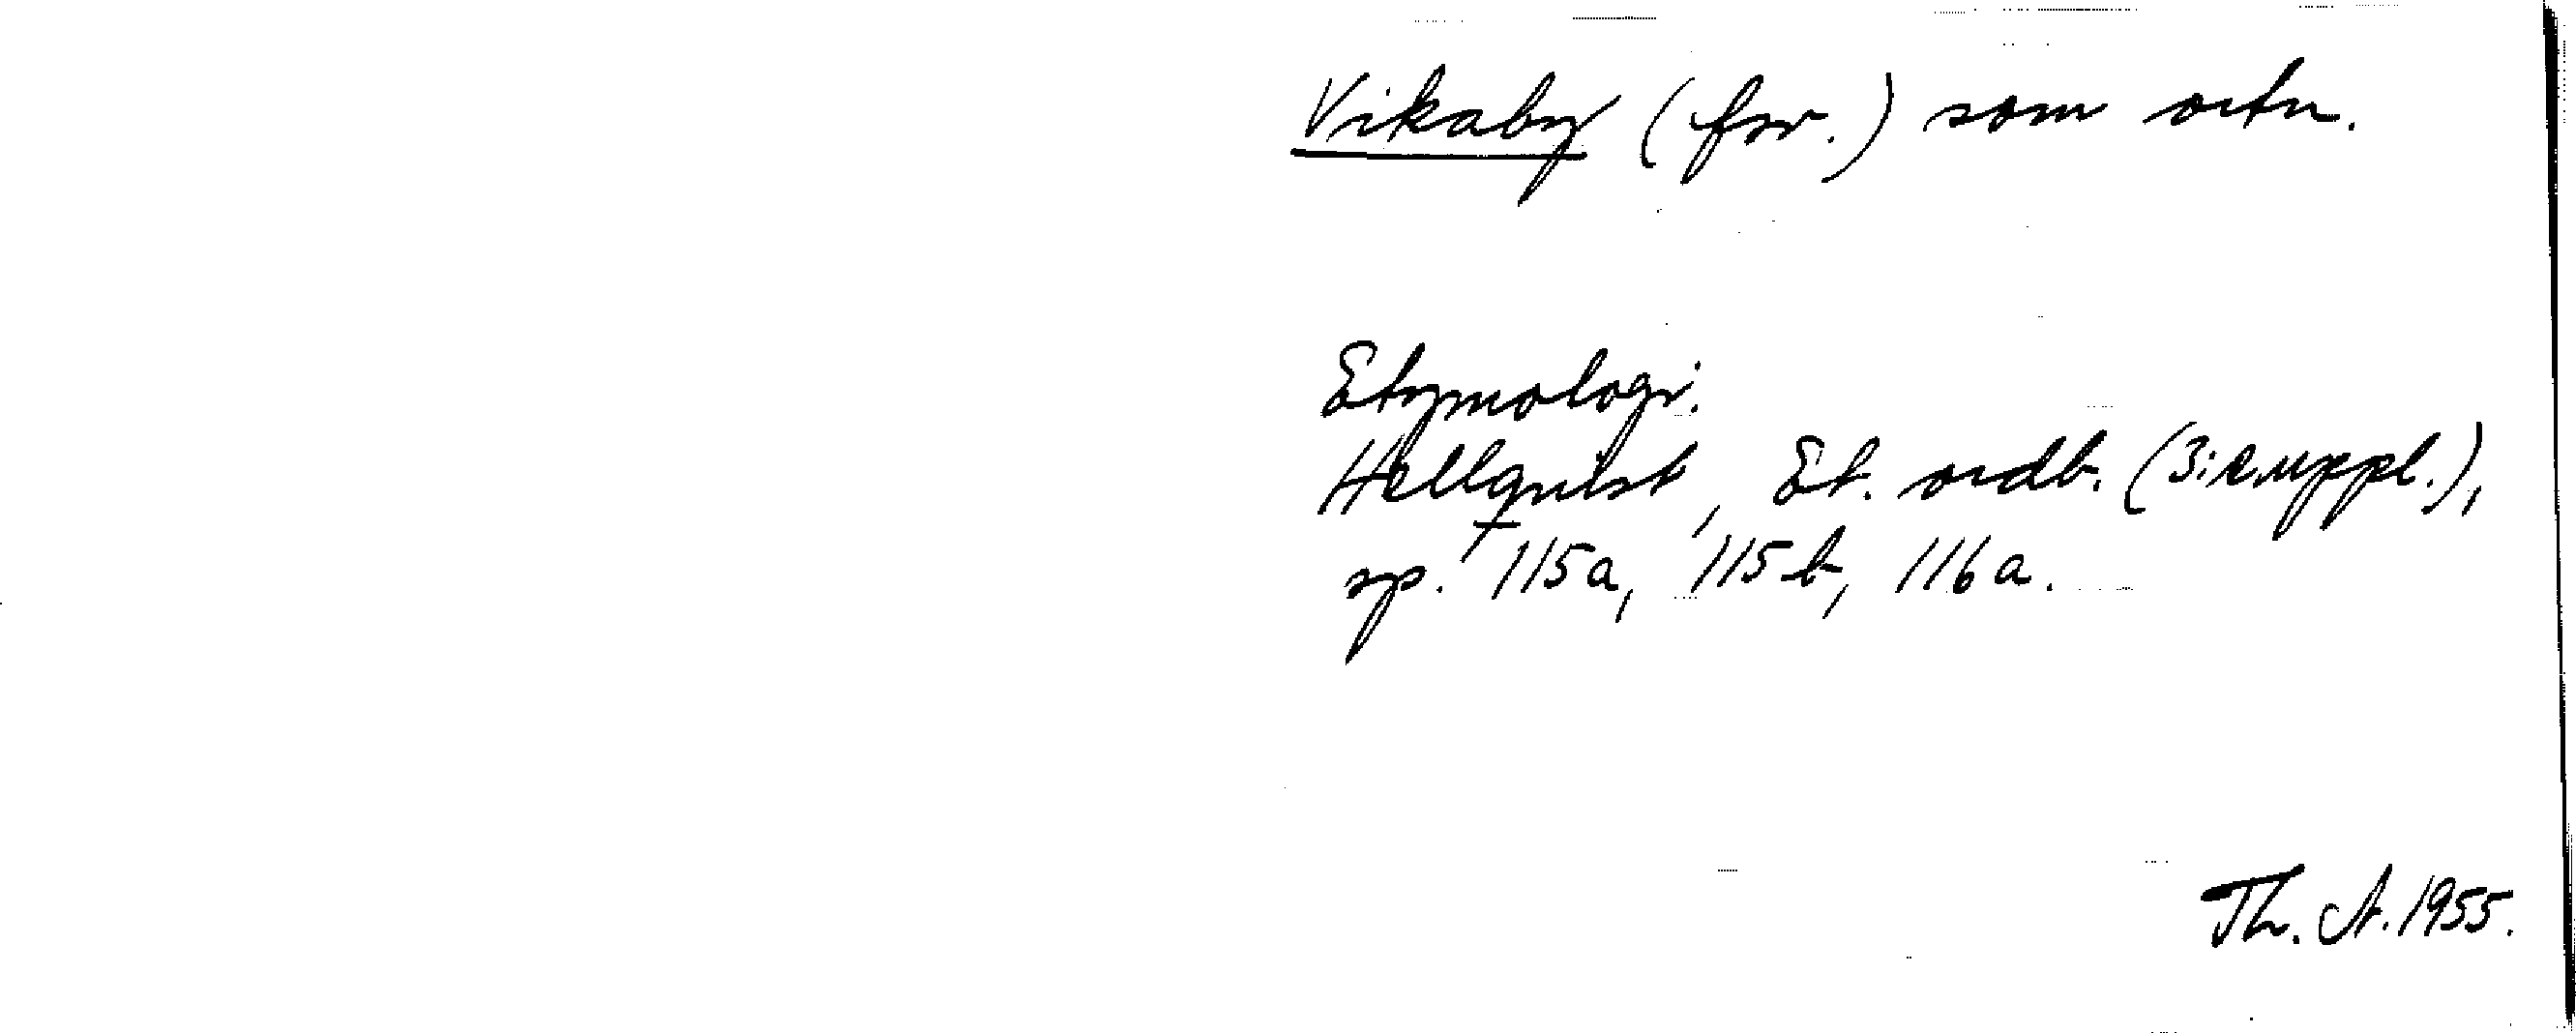 Vikaby (fsv.) som ortn.
Etymologi.
Hellquist, Et. ordb. (3:e uppl.),
sp. 115a, 115b, 116a.
Th. A. 1955.